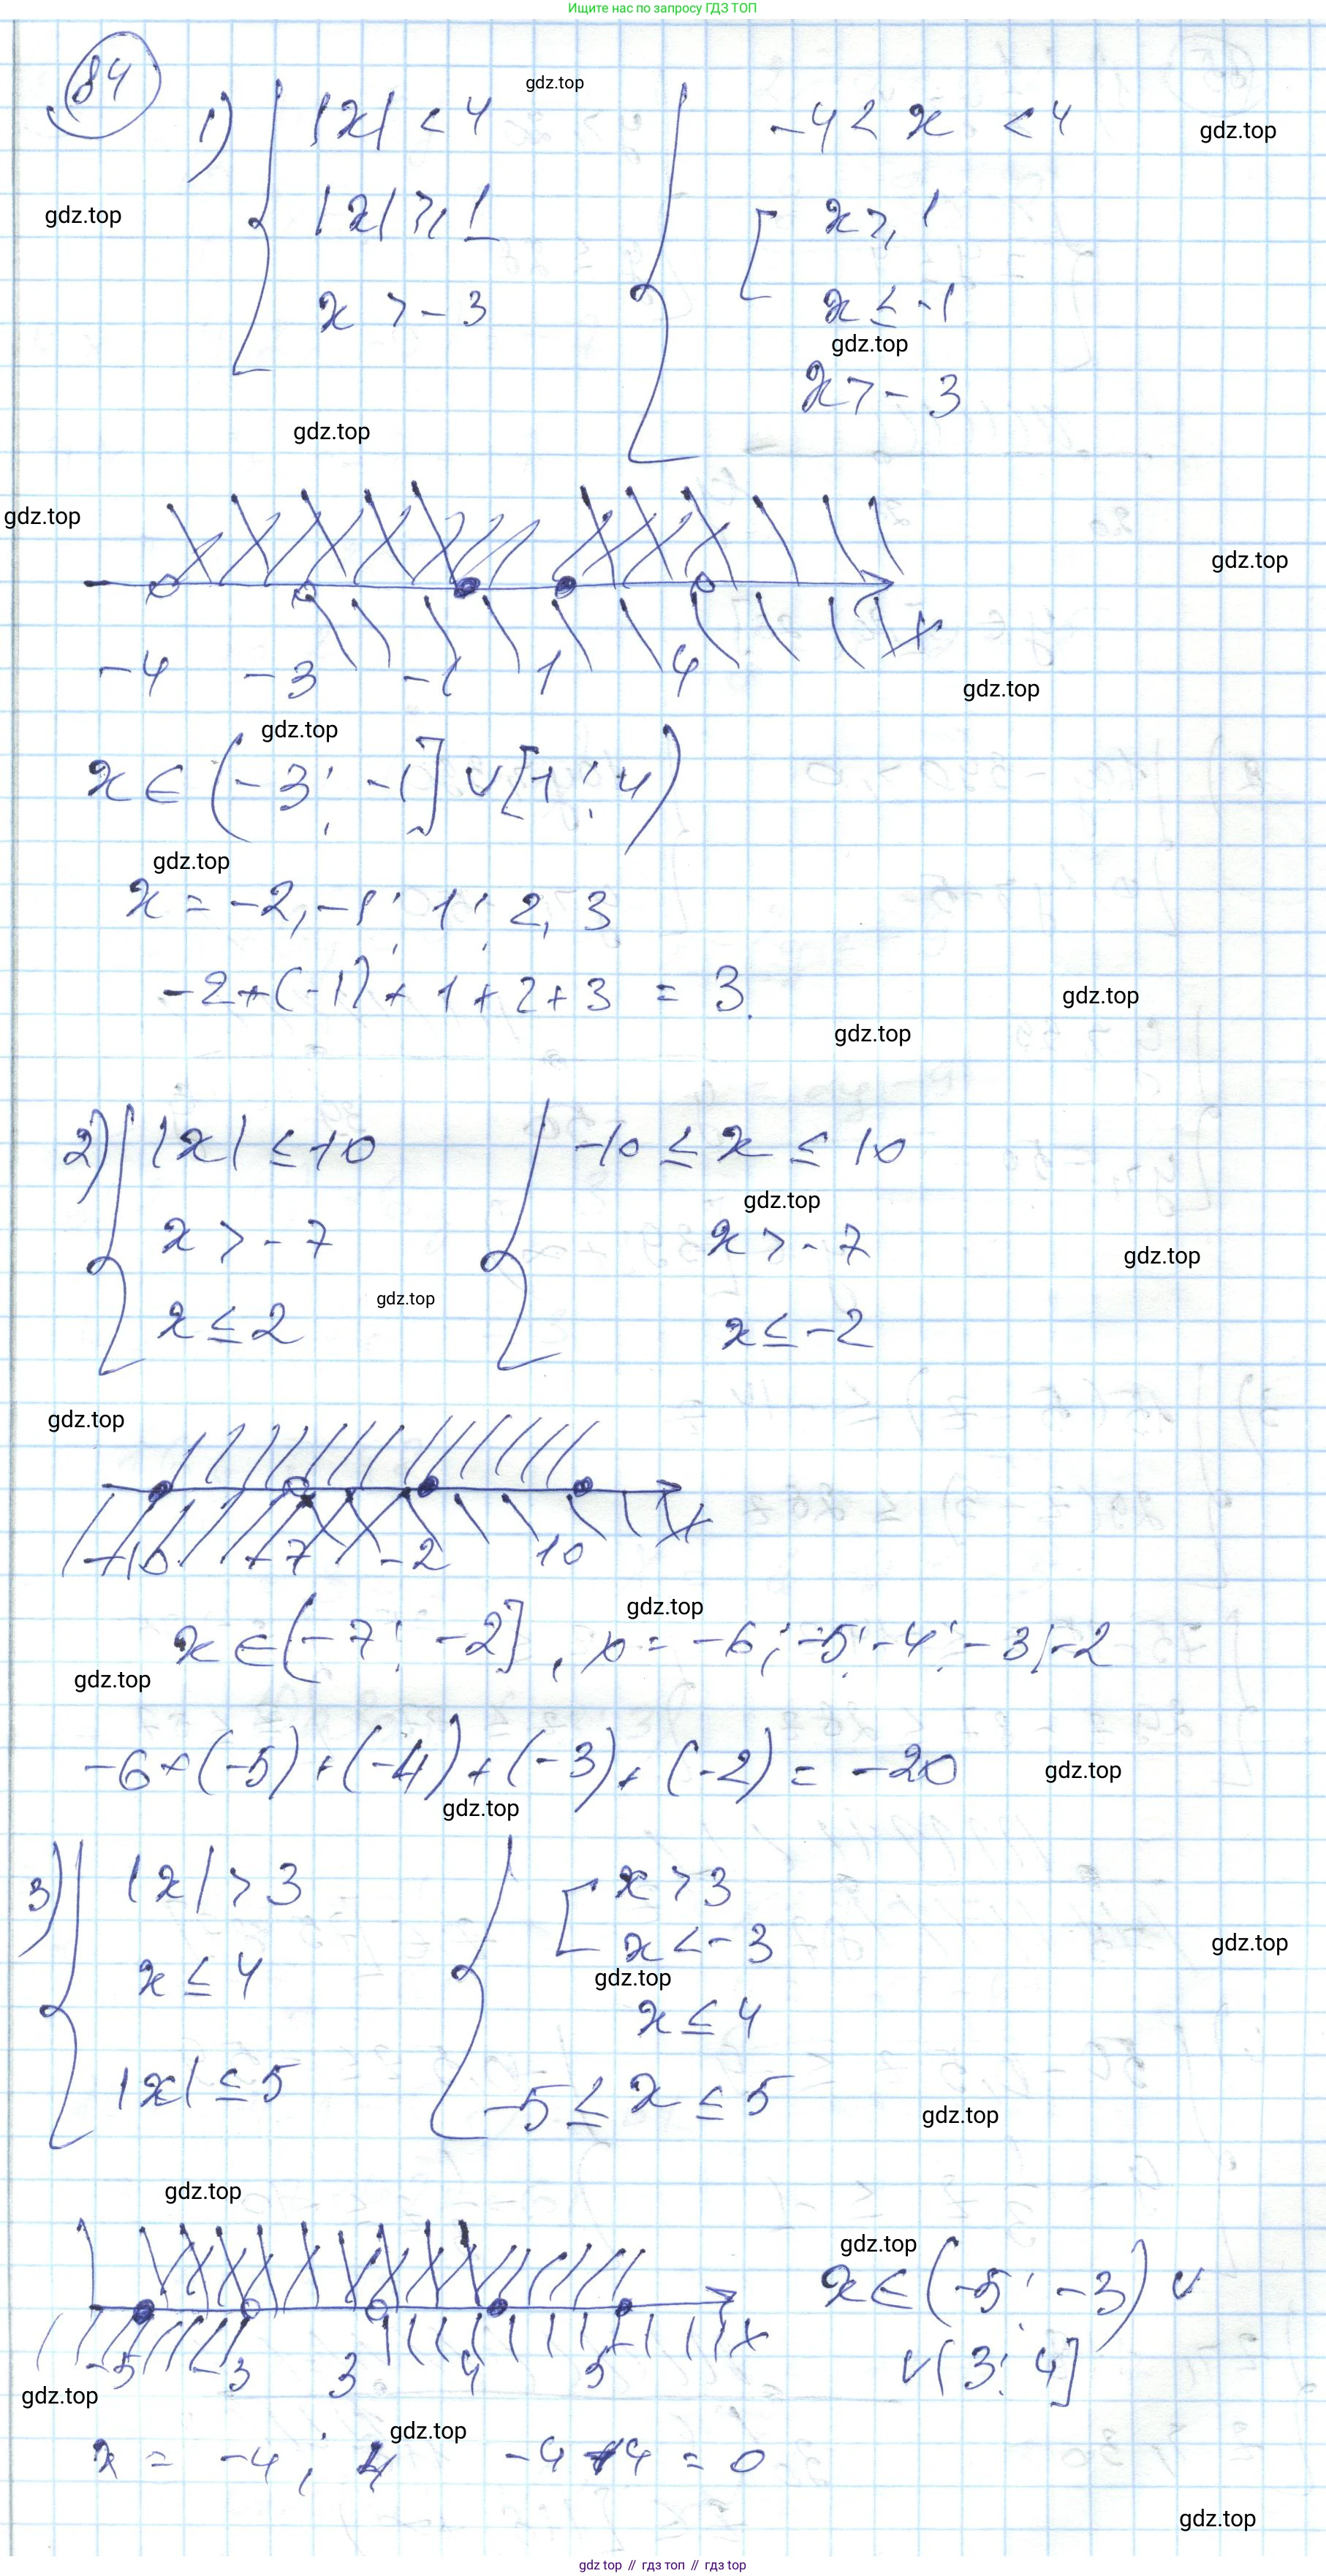 Ищите нас по запросу ГДЗ ТОП
84
gdz.top
1) { |x| < 4 { -4 < x < 4
gdz.top
gdz.top
|x| ≥ 1 [ x ≥ 1
x > -3 x ≤ -1
gdz.top
x > -3
gdz.top
gdz.top
gdz.top
x
-4 -3 -1 1 4
gdz.top
gdz.top
x ∈ (-3; -1] ∨ [1; 4)
gdz.top
x = -2, -1; 1; 2, 3
-2+(-1)+1+2+3 = 3.
gdz.top
gdz.top
2) { |x| ≤ 10 { -10 ≤ x ≤ 10
gdz.top
x > -7 x > -7
gdz.top
gdz.top
x ≤ 2 x ≤ -2
gdz.top
x
-10 -7 -2 10
gdz.top
x ∈ (-7; -2], x = -6; -5; -4; -3; -2
gdz.top
-6+(-5)+(-4)+(-3)+(-2) = -20
gdz.top
gdz.top
3) { |x| > 3 { [ x > 3
x < -3
gdz.top
gdz.top
x ≤ 4 x ≤ 4
|x| ≤ 5 -5 ≤ x ≤ 5
gdz.top
gdz.top
gdz.top
x ∈ (-5; -3) ∨
x
-5 -3 3 4 5
∨ (3; 4]
gdz.top
gdz.top
x = -4; 4 -4+4 = 0
gdz.top
gdz top // гдз топ // гдз top